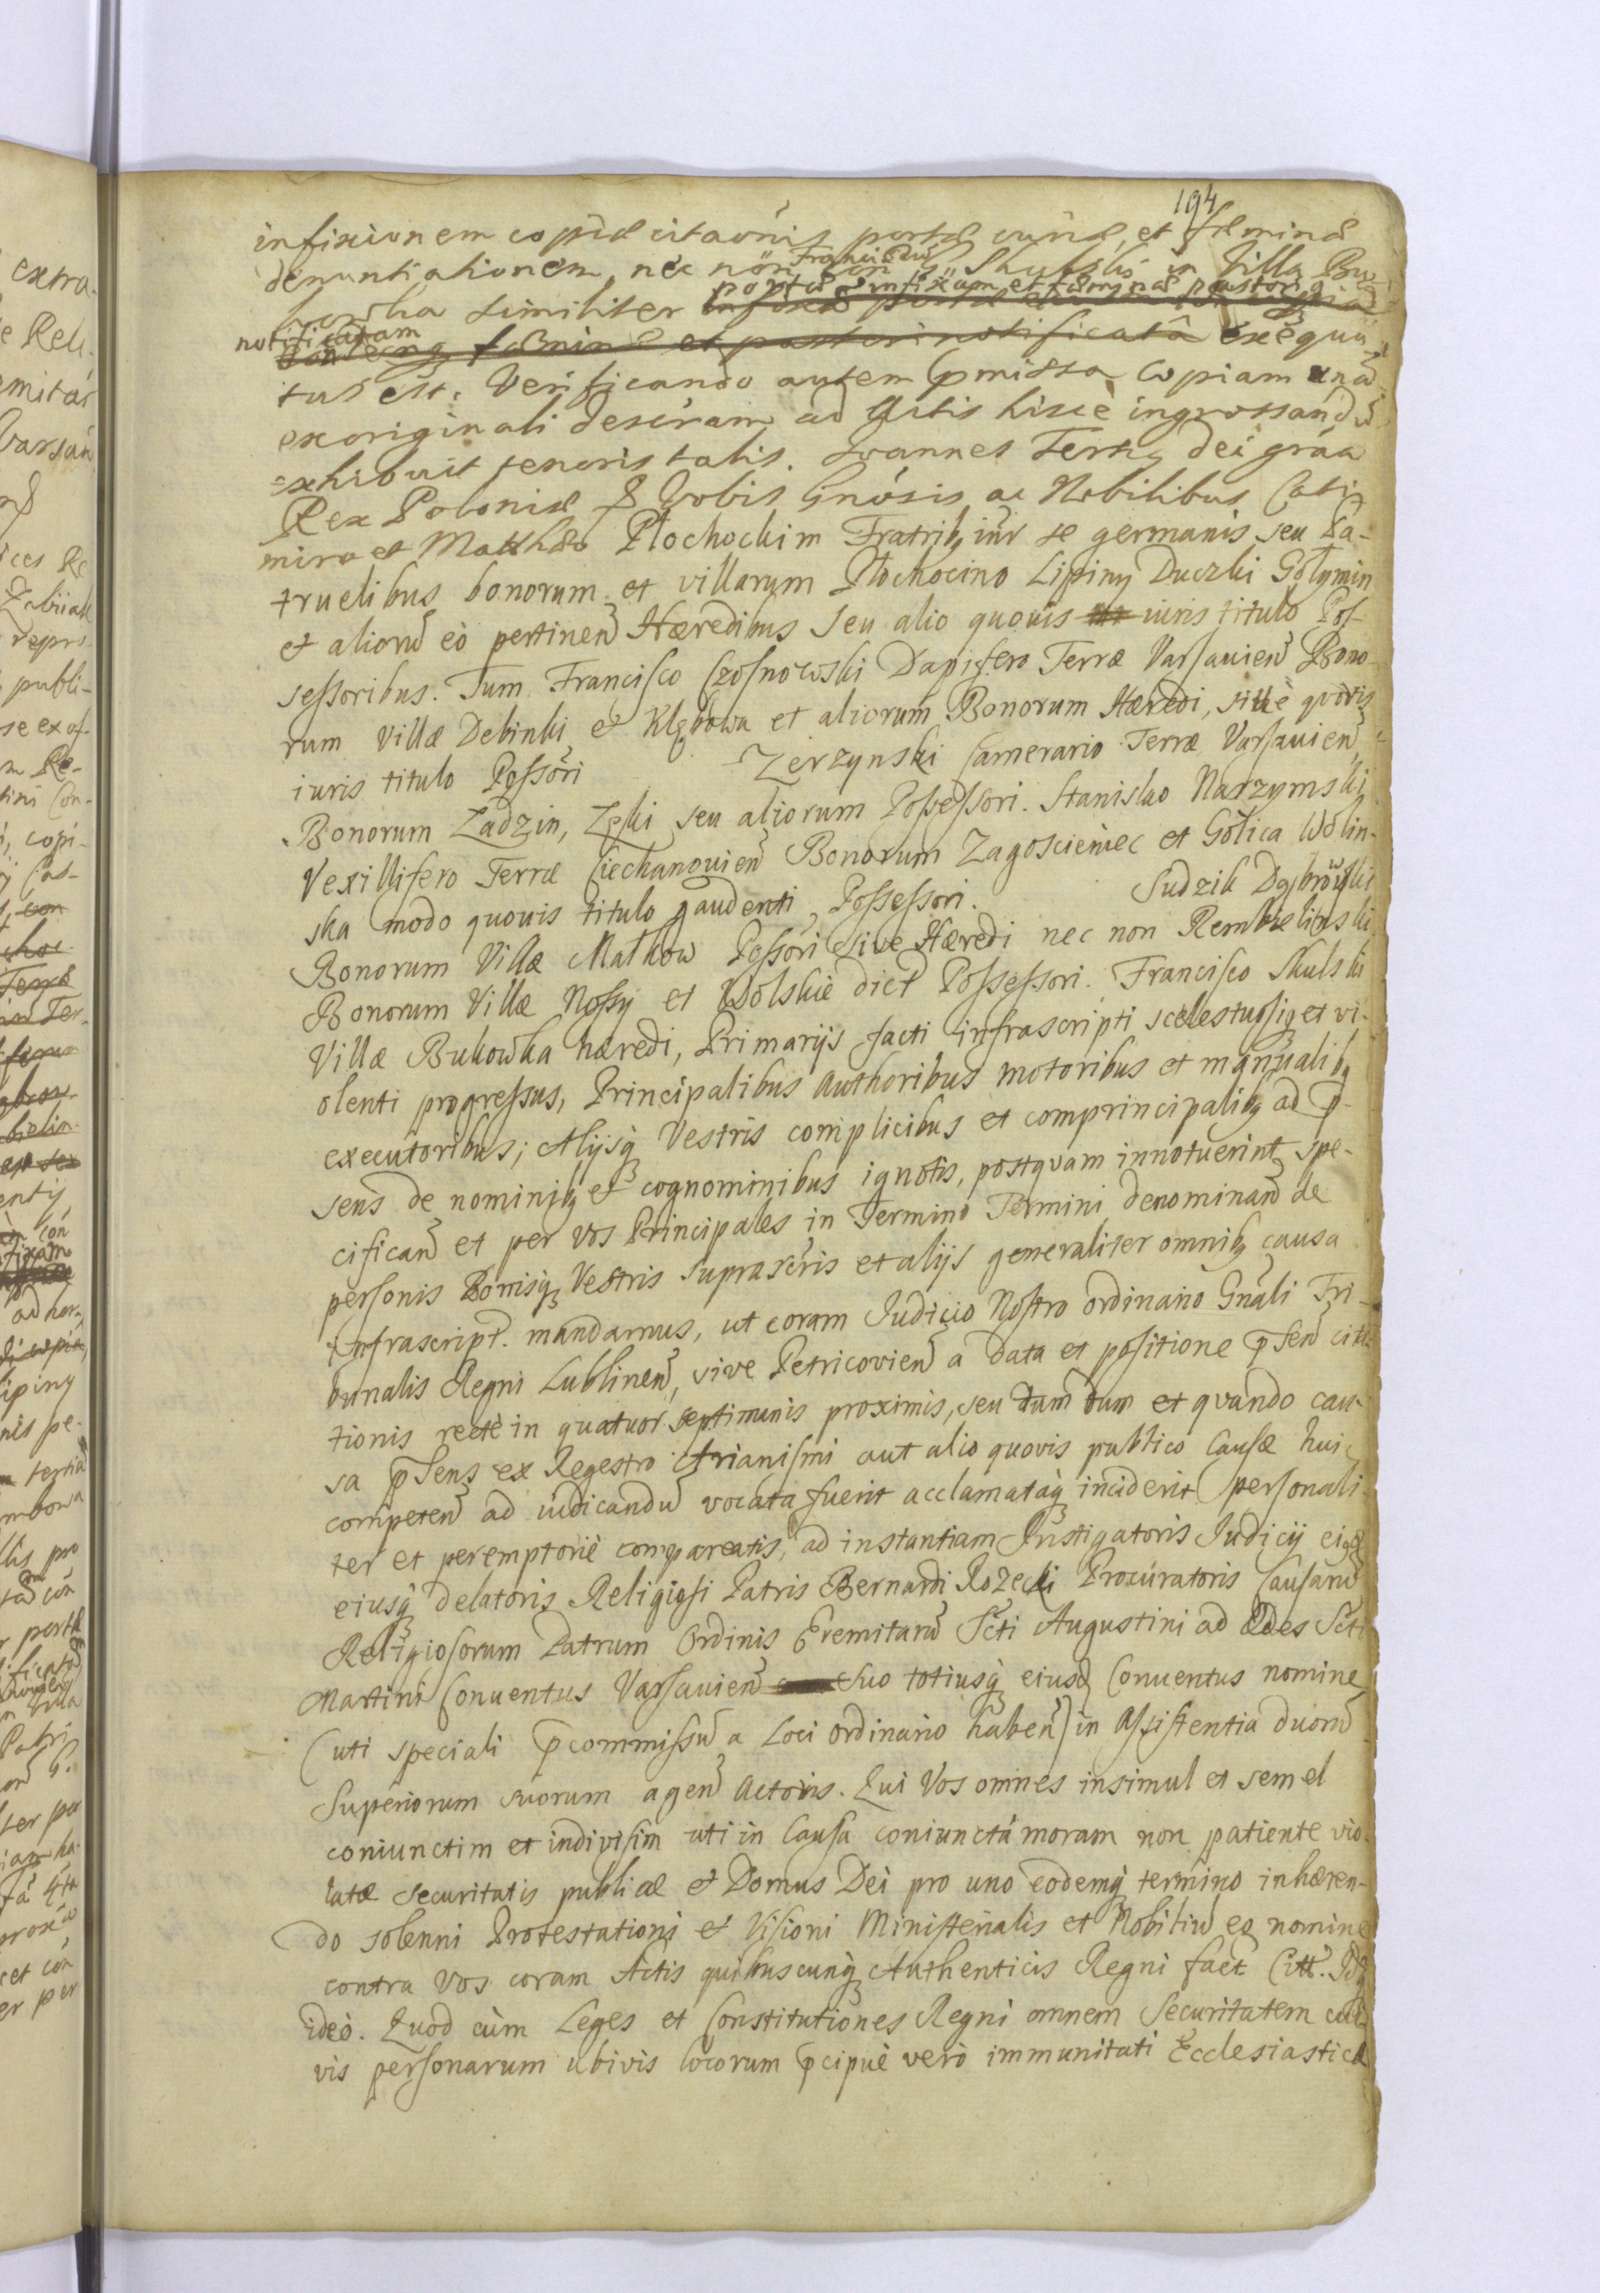 194
infixionem copiæ citaōnis portæ curiæ, et fæminæ
denuntiationem, nec non con Franciscū Skulski in Villa Bu
kowka similiter portæ infixam et fæminæ pastoriq
notificatam fæminæ et pastori notificata exequu
tus est. Verificando autem pmissa Copiam unā
ex originali descram ad Actis hisce ingrossandū
exhibuit tenoris talis. Joannes Tertq dei grãa
Rex Poloniæ & Vobis Gnósis ac Nobilibus Casi
miro et Matthæo Płochockim Fratribq inr se germanis seu Pa-
truelibus bonorum et villarum Płochocino Lipiny Duczki Gołymin
et aliorū eò pertinen Hæredibus seu alio quouis iuris titulo Pos-
sessoribus. Tum Francisco Czosnowski Dapifero Terræ Varsauien Bono-
rum villæ Debinki et Klębowa et aliorum Bonorum Hæredi, siue quovis
iuris titulo Possori Zerzynski Camerario Terræ Varsauien
Bonorum Zadzin, Zęski seu aliorum Possessori. Stanislao Narzymski
Vexillifero Terræ Ciechanouien Bonorum Zagoscieniec et Golica Wolin-
ska modo quouis titulo gaudenti Possessori. Sudzik Dąbrowski
Bonorum Villæ Malkow Possori sive Hæredi nec non Rembielinski
Bonorum Villæ Nossy et Wolskie dict Possessori. Francisco Skulski
Villæ Bukowka hæredi, Primarijs facti infrascripti scelestuosiq et vi-
olenti progressus, Principalibus Authoribus motoribus et manualibq
executoribus; Alijsq Vestris complicibus et comprincipalibq ad p-
sens de nominibq et cognominibus ignotis, postquam innotuerint spe-
cifican et per vos Principales in Termino Termini denominan de
personis Bonisq Vestris suprascris et alijs generaliter omnibq causa
infrascript. mandamus, ut coram Judicio Nostro ordinario Gnali Tri-
bunalis Regni Lublinen, sive Petricovien a data et positione psen cita
tionis recte in quatuor septimanis proximis, seu tum dum et quando cau-
sa psens ex Regestro Arianismi aut alio quovis publico Causæ huic
competen ad iudicandū vocata fuerit acclamataq inciderit personali
ter et peremptorie compareatis, ad instantiam Instigatoris Judicij eiqd
eiusq delatoris Religiosi Patris Bernardi Rożecki Procuratoris Causarū
Religiosorum Patrum Ordinis Eremitarū Scti Augustini ad Ædes Scti
Martini Conuentus Varsauien Suo totiusq eiusd Conuentus nomine
(uti speciali pcommissū a Loci ordinario haben) in Assistentia duorū
Superiorum suorum agen Actoris. Qui Vos omnes insimul et semel
coniunctim et indivisim uti in Causa coniuncta moram non patiente vio-
latæ securitatis publicæ et Domus Dei pro uno eodemq termino inhæren-
do solenni Protestationi et Visioni Ministerialis et Nobiliū eo nomine
contra vos coram Actis quibuscunq Authenticis Regni fact Citt. Idq
ideò. Quod cùm Leges et Constitutiones Regni omnem Securitatem cui
vis personarum ubivis locorum pcipuè verò immunitati Ecclesiasticæ